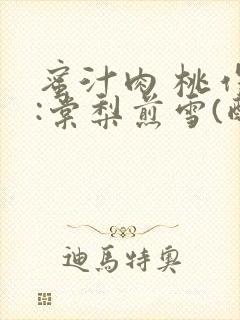 蜜汁肉桃作
:棠梨煎雪(
迪馬特奧